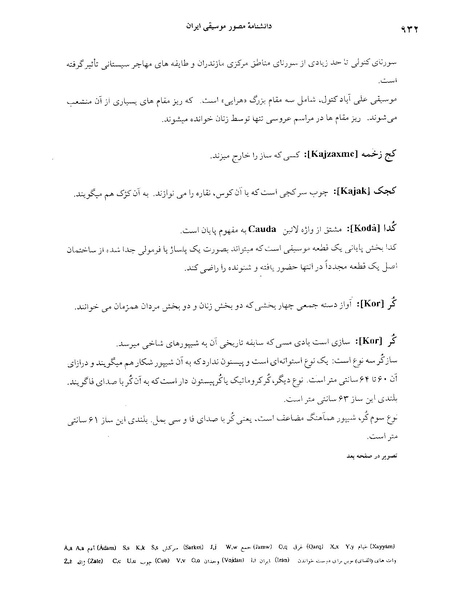 ۹۳۲
دانشنامهٔ مصور موسیقی ایران
سورنای کتولی تا حد زیادی از سورنای مناطق مرکزی مازندران و طایفه های مهاجر سیستانی تأثیر گرفته
است.
موسیقی علی آباد کتول، شامل سه مقام بزرگ «هرایی» است. که ریز مقام های بسیاری از آن منشعب
می‌شوند. ریز مقام ها در مراسم عروسی تنها توسط زنان خوانده میشوند.
کج زخمه [Kajzaxme]: کسی که ساز را خارج میزند.
کجک [Kajak]: چوب سرکجی است که با آن کوس، نقاره را می نوازند. به آن کژک هم میگویند.
کُدا [Kodâ]: مشتق از واژه لاتین Cauda به مفهوم پایان است.
کدا بخش پایانی یک قطعه موسیقی است که میتواند بصورت یک پاساژ یا فرمولی جدا شده از ساختمان
اصل یک قطعه مجدداً در انتها حضور یافته و شنونده را راضی کند.
کُر [Kor]: آواز دسته جمعی چهار بخشی که دو بخش زنان و دو بخش مردان همزمان می خوانند.
کُر [Kor]: سازی است بادی مسی که سابقه تاریخی آن به شیپورهای شاخی میرسد.
ساز کُر سه نوع است: یک نوع استوانه‌ای است و پیستون ندارد که به آن شیپور شکار هم میگویند و درازای
آن ۶۰ تا ۶۴ سانتی متر است. نوع دیگر، کُر کروماتیک یا کُر پیستون دار است که به آن کُر با صدای فا گویند،
بلندی این ساز ۶۳ سانتی متر است.
نوع سوم کُر، شیپور هماهنگ مضاعف است، یعنی کُر با صدای فا و سی بمل. بلندی این ساز ۶۱ سانتی
متر است.
تصویر در صفحه بعد
A,a A,a آدم (Âdam) S,s K,k S,s سرکش (Sarkeš) J,j جمع (Jamw) W,w غرق (Qarq) Q,q X,x Y,y خیام (Xayyam)
Z,z ژاله (Žale) C,c U,u چوب (Cub) V,v O,o وجدان (Vojdan) I,i ایران (Irân) وات های (الفبای) نوین برای درست خواندن